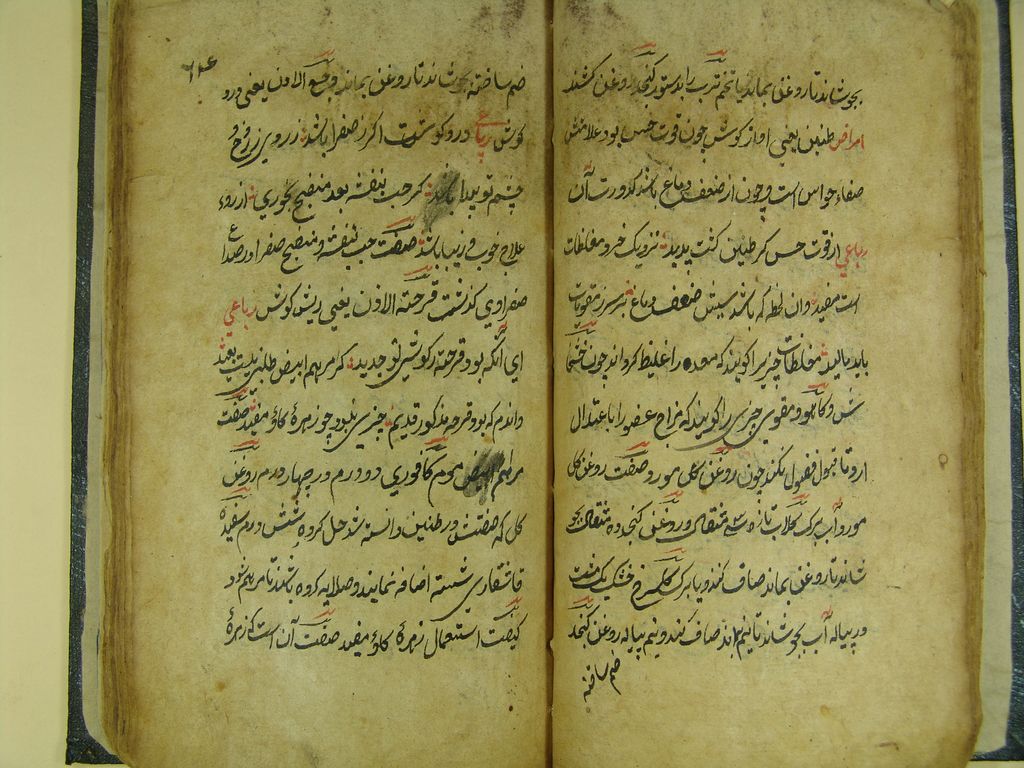 بجوشاند تا روغن بماند یا تخم ترب را بدستور کنجد روغن کشند
امراض طنین یعنی آواز گوش چون قوت حس بود علامتش
صفاء حواس است و چون از ضعف دماغ باشد کدورت آن
رباعی از قوت حس کر طنین کشت پدید نزدیک خرد مغلظات
است مفید وان لحظه که باشد سببش ضعف دماغ بر سر ز مقویات
باید مالید مغلظات چیزیرا کویند که معده را غلیظ کرداند چون خشخا
ش و کاهو و مقوی چیزی را کویند که مزاج عضو را باعتدال
ارد تا قبول فضول نکند چون روغن کل مورد صفت روغن کل
مورد آب برک کلاب تازه سی مثقال و روغن کنجد ده مثقال بجو
شاند تا روغن بماند صاف کند و یا برک کل سرخ خشک یک مشت
در پیاله آب بجوشاند تا نیم بماند صاف کند و نیم پیاله روغن کنجد
ضم ساخته
ضم ساخته بجوشاند تا روغن بماند وجع الاذن یعنی درد
کوش رباعی درد کوشت اکر ز صفرا باشد زردی رخ و
چشم تو پیدا باشد کر حب بنفشه بعد منضج بخوری از روء
علاج خوب و زیبا باشد صفت حب بنفشه و منضج صفرا در صداع
صفراوی کذشت قرحة الاذن یعنی ریش کوش رباعی
ای آنکه بود قرحه کوش تو جدید کر مرهم ابیض طلبی نیست بعید
واندم که بود قرحه مذکور قدیم چیزی نبود چو زهرۀ کاو مفید صفت
مرهم ابیض موم کافوری دو درم در چهار درم روغن
کل که صفتش در طنین دانسته شد حل کرده شش درم سفیده
قاشقاری شسته اضافه نمایند و صلایه کرده باشند تا مرهم شود
کیفیت استعمال زهرۀ کاو مفید صفت آن است که زهرۀ